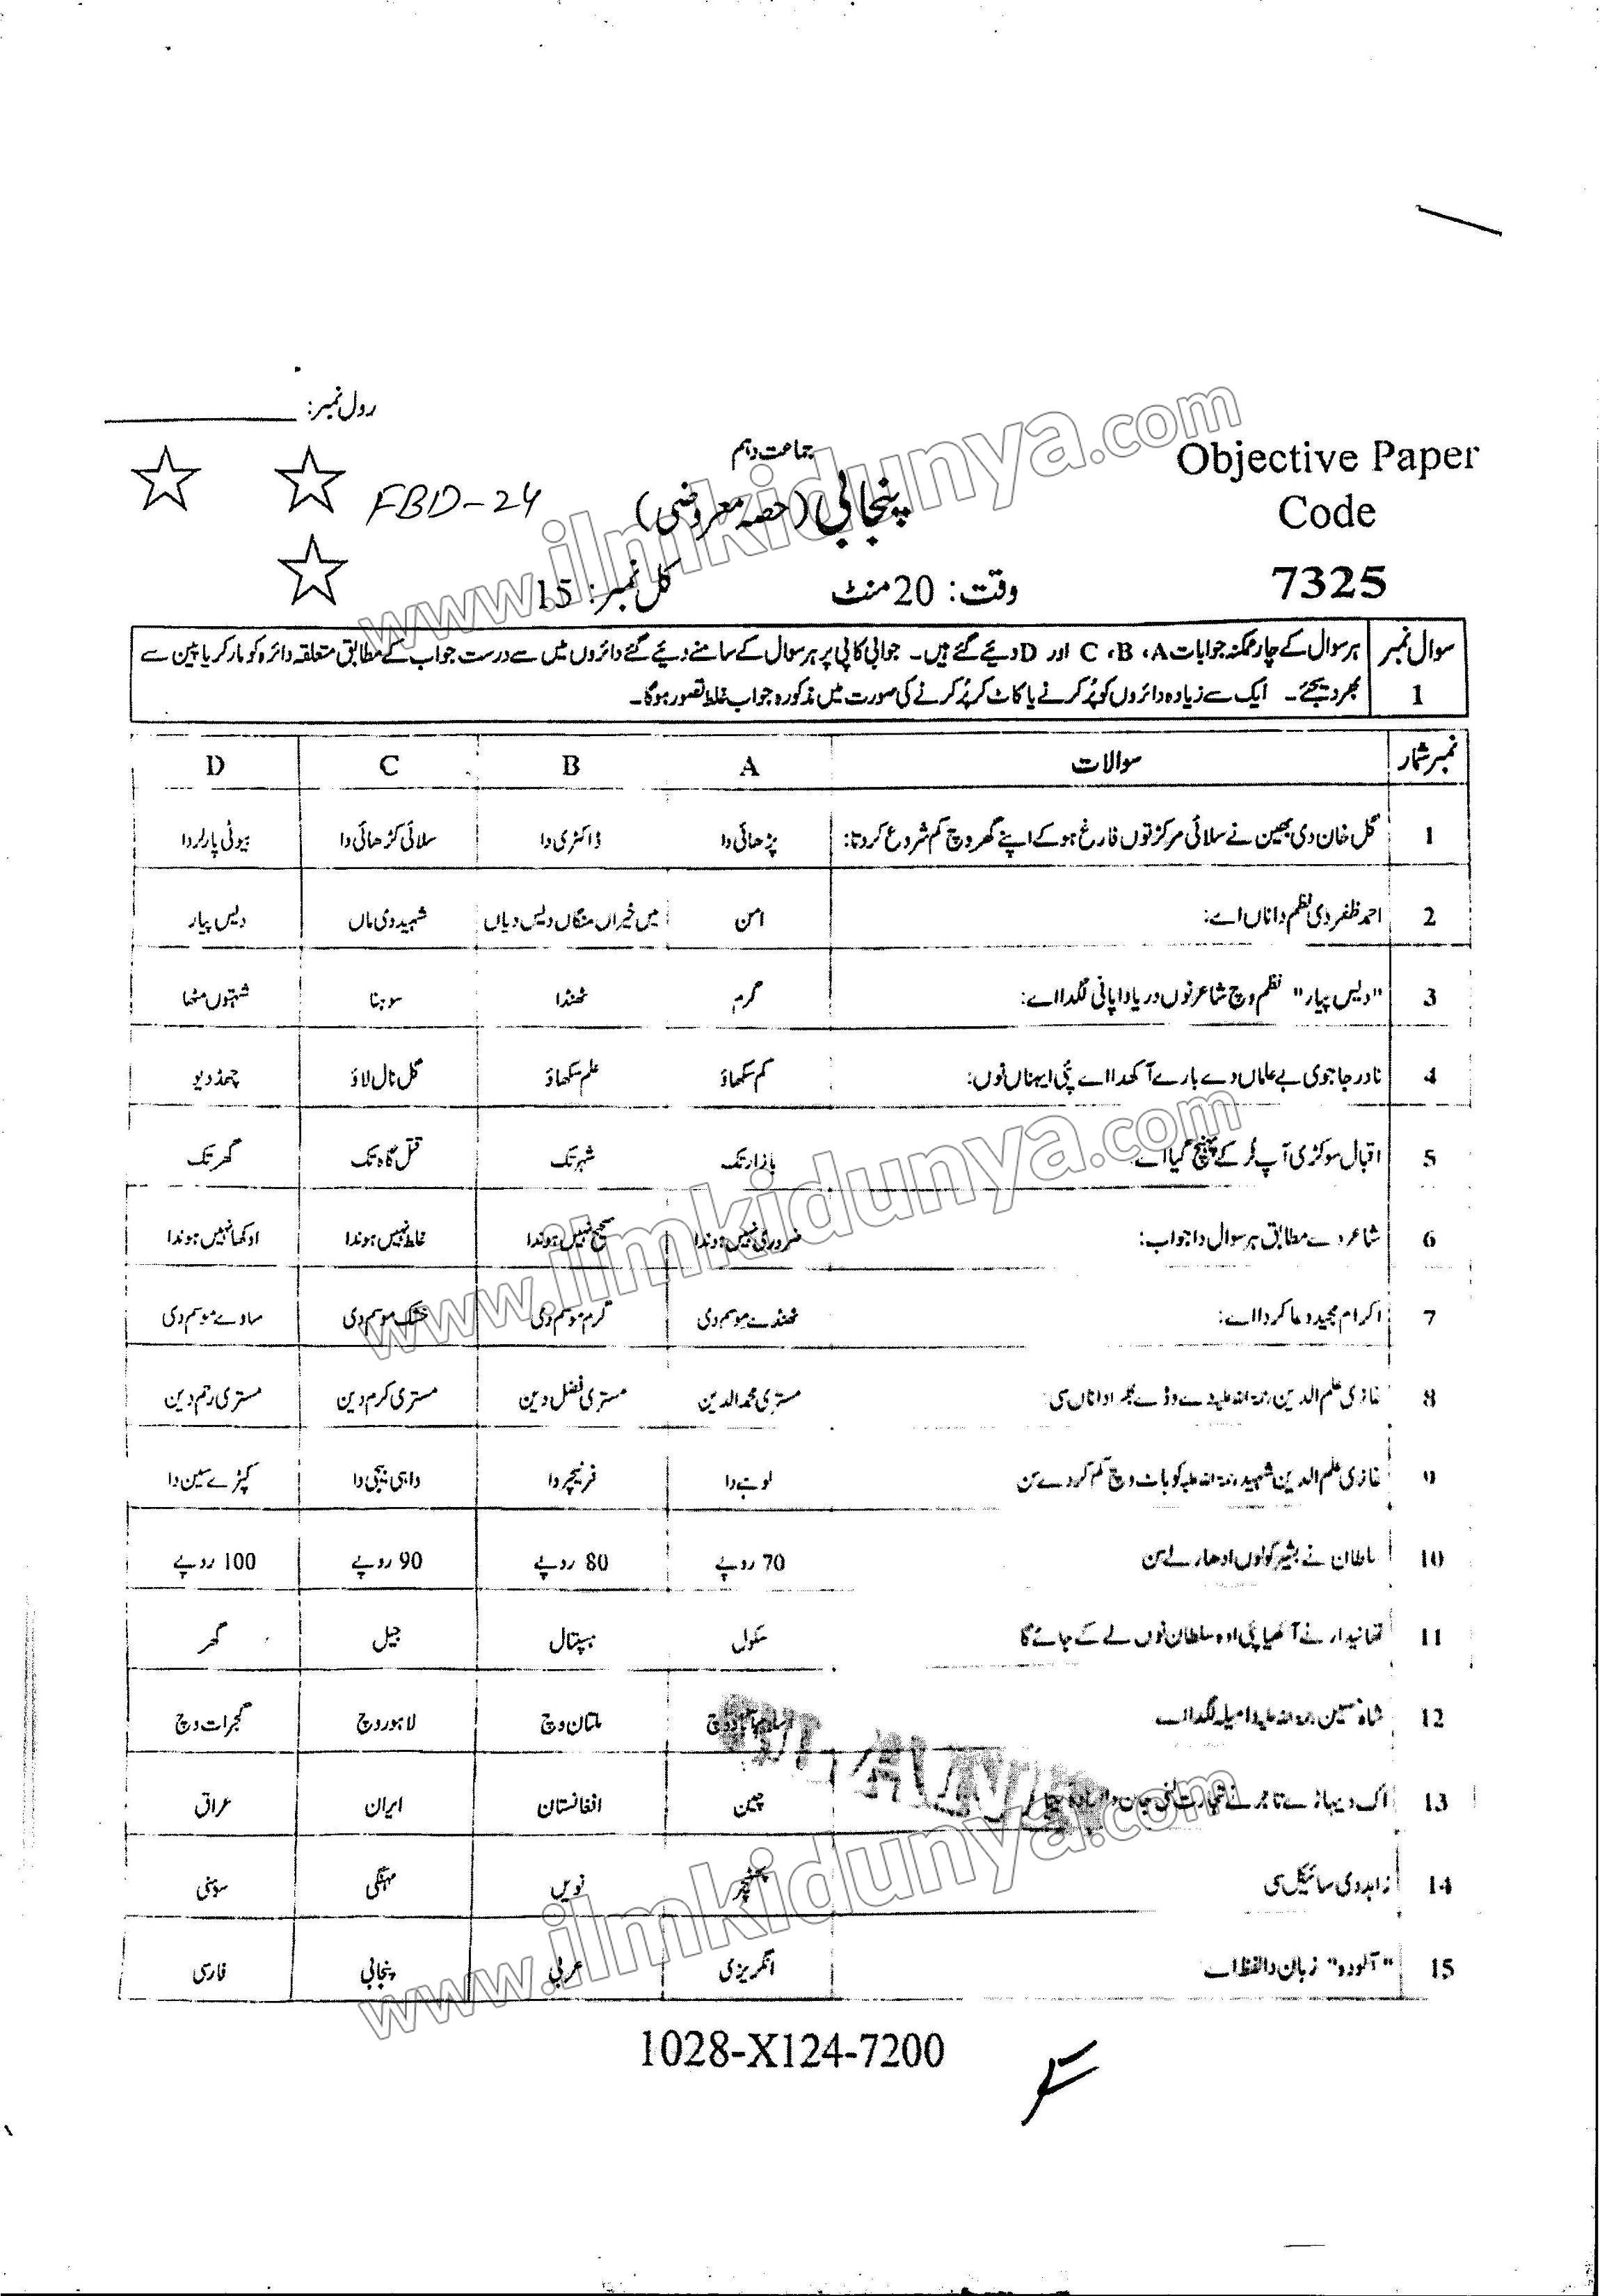 رول نمبر:
جماعت دہم
Objective Paper
Code
7325
پنجابی (حصہ معروضی)
FBD-24
وقت: 20 منٹ
کل نمبر: 15
سوال نمبر 1
ہر سوال کے چار ممکنہ جوابات A، B، C اور D دیئے گئے ہیں۔ جوابی کاپی پر ہر سوال کے سامنے دیئے گئے دائروں میں سے درست جواب کے مطابق متعلقہ دائرہ کو مارکر یا پین سے
بھر دیجئے۔ ایک سے زیادہ دائروں کو پُر کرنے یا کاٹ کر پُر کرنے کی صورت میں مذکورہ جواب غلط تصور ہوگا۔
نمبر شمار سوالات A B C D
1 گل خان دی بھین نے سلائی مرکز توں فارغ ہو کے اپنے گھر وچ کم شروع کر دتا: پڑھائی دا ڈاکٹری دا سلائی کڑھائی دا بیوٹی پارلر دا
2 احمد ظفر دی نظم دا ناں اے: امن میں خیراں منگاں دیس دیاں شہید دی ماں دیس پیار
3 "دیس پیار" نظم وچ شاعر نوں دریا دا پانی لگدا اے: گرم ٹھنڈا سوہنا شہتوں مٹھا
4 نادر جاجوی بے علماں دے بارے آکھدا اے پئی ایہناں نوں: کم سکھاؤ علم سکھاؤ گل نال لاؤ چھڈ دیو
5 اقبال سوکڑی آپ ٹر کے پہنچ گیا اے بازار تک شہر تک قتل گاہ تک گھر تک
6 شاعر دے مطابق ہر سوال دا جواب: ضروری نہیں ہوندا صحیح نہیں ہوندا غلط نہیں ہوندا اوکھا نہیں ہوندا
7 اکرام مجید دعا کردا اے: ٹھنڈے موسم دی گرم موسم دی خشک موسم دی ساوے موسم دی
8 غازی علم الدین رحمۃ اللہ علیہ دے وڈے بھرا دا ناں سی: مستری محمد الدین مستری فضل دین مستری کرم دین مستری رحم دین
9 غازی علم الدین شہید رحمۃ اللہ علیہ کوہاٹ وچ کم کردے سن لوہے دا فرنیچر دا واہی بیجی دا کپڑے سین دا
10 سلطان نے بشیر کولوں ادھار لے سن 70 روپے 80 روپے 90 روپے 100 روپے
11 تھانیدار نے آکھیا پئی اوہ سلطان نوں لے کے جائے گا سکول ہسپتال جیل گھر
12 شاہ حسین رحمۃ اللہ علیہ دا میلہ لگدا اے ملتان وچ لاہور وچ گجرات وچ
13 اک دیہاڑے تاجر نے تجارت لئی جان دا چین افغانستان ایران عراق
14 زاہد دی سائیکل سی پھٹیچر نویں مہنگی سوہنی
15 "آلودہ" زبان دا لفظ اے انگریزی عربی پنجابی فارسی
1028-X124-7200
www.ilmkidunya.com
www.ilmkidunya.com
www.ilmkidunya.com